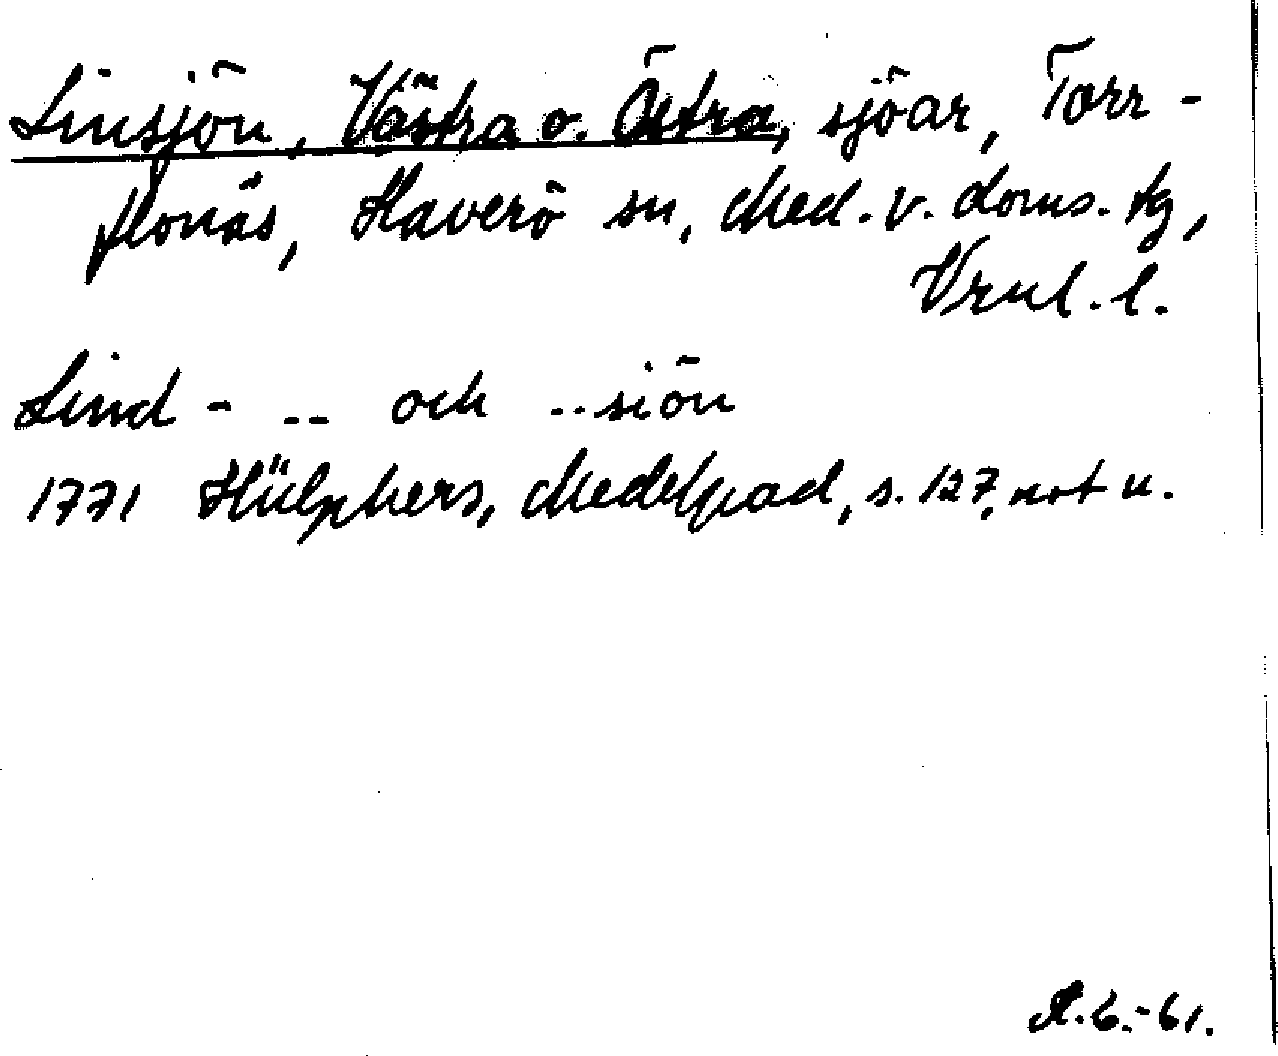 Linsjön, Västra o. Östra, sjöar, Torr-
flonäs, Haverö sn, Med. v. doms. tg,
Vrnl. l.
Lind - -- och ..siön
1771 Hülphers, Medelpad, s. 127, not u.
A.G.-61.